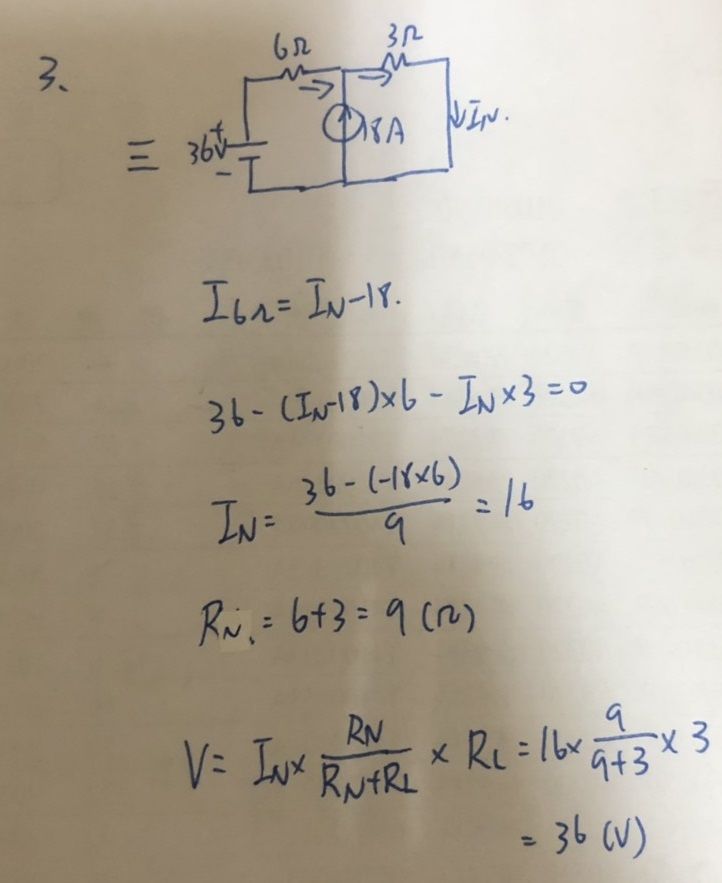 3、
6Ω
3Ω
三 36V + -
18A
IN.
I6Ω = IN-18.
36 - (IN-18)×6 - IN×3=0
IN= 36-(-18×6) / 9 = 16
RN. = 6+3 = 9 (Ω)
V= IN× RN / RN+RL × RL = 16× 9 / 9+3 × 3
= 36 (V)